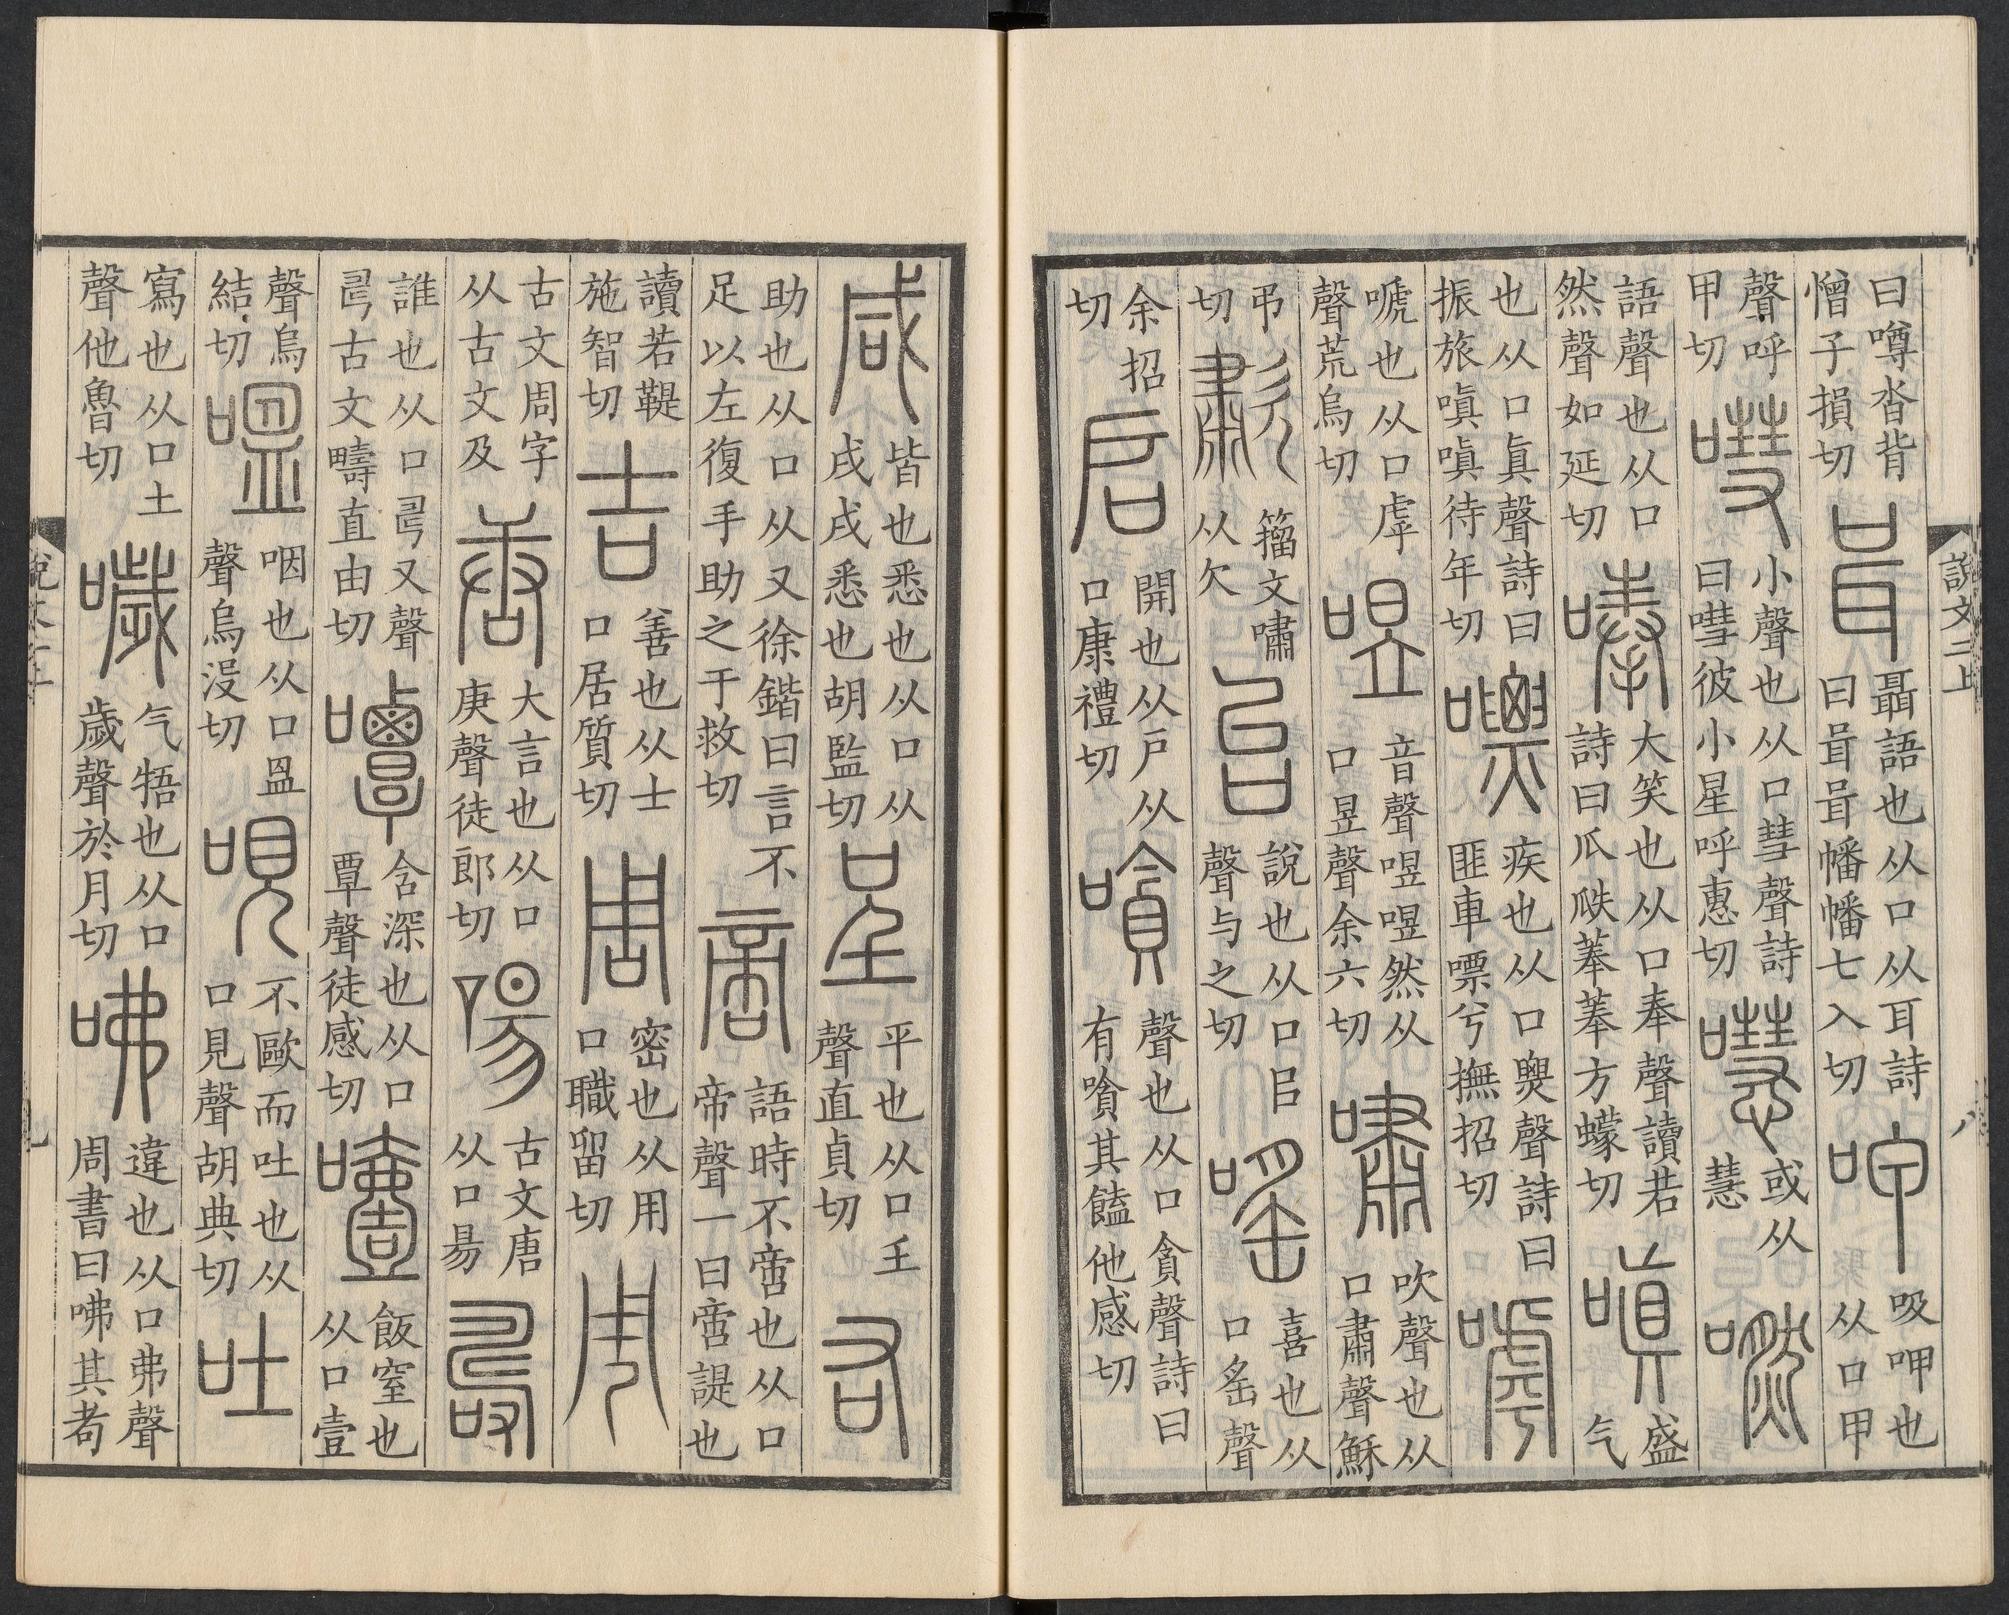 說文二上
八
曰噂沓背憎子損切咠聶語也从口从耳詩曰咠咠幡幡七入切呷吸呷也从口甲
聲呼甲切嘒小聲也从口彗聲詩曰嘒彼小星呼惠切嚖或从慧嘫
語聲也从口然聲如延切唪大笑也从口奉聲讀若詩曰瓜瓞菶菶方蠓切嗔盛气
也从口眞聲詩曰振旅嗔嗔待年切嘌疾也从口㶾聲詩曰匪車嘌兮撫招切嘑
嗁也从口虖聲荒烏切喅音聲喅喅然从口昱聲余六切嘯吹聲也从口肅聲穌
弔切歗籀文嘯从欠台說也从口㠯聲与之切嗂喜也从口䍃聲
余招切启開也从戶从口康禮切嗿聲也从口貪聲詩曰有嗿其饁他感切
咸皆也悉也从口从戌戌悉也胡監切呈平也从口壬聲直貞切右
助也从口从又徐鍇曰言不足以左復手助之于救切啻語時不啻也从口帝聲一曰啻諟也
讀若鞮施智切吉善也从士口居質切周密也从用口職留切
古文周字从古文及唐大言也从口庚聲徒郎切啺古文唐从口昜𠷎
誰也从口𢏚又聲𢏚古文疇直由切嘾含深也从口覃聲徒感切噎飯窒也从口壹
聲烏結切嗢咽也从口𥁕聲烏沒切哯不歐而吐也从口見聲胡典切吐
寫也从口土聲他魯切噦气牾也从口歲聲於月切咈違也从口弗聲周書曰咈其耇